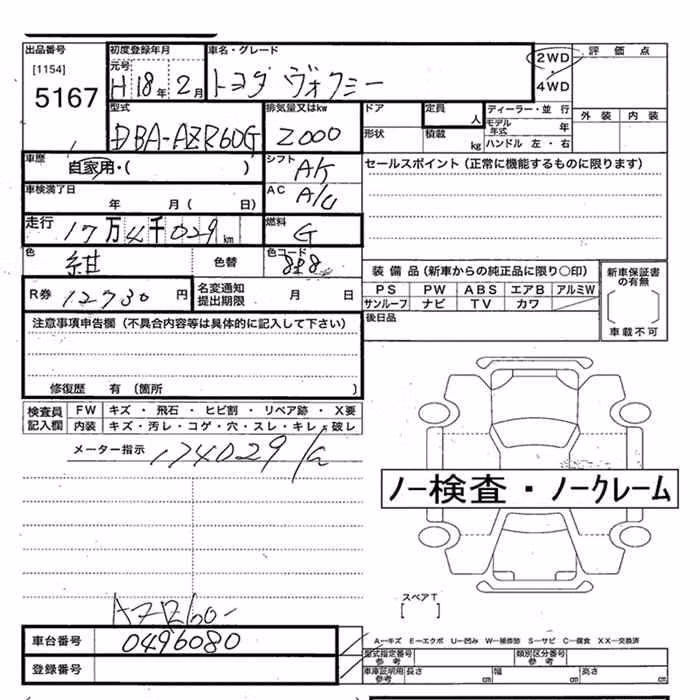 出品番号 初度登録年月 車名・グレード 評価点
[1154] 元号 2WD・4WD
5167 H 18年 2月 トヨタ ヴォクシー
外装 内装
型式 排気量又はkw ドア 定員 人 ディーラー・並行
DBA-AZR60G 2000 形状 積載 kg モデル年式 年
ハンドル 左・右
車歴 自家用・( ) シフト AK セールスポイント(正常に機能するものに限ります)
車検満了日 年 月( 日) AC A/C
走行 17万4千029km 燃料 G
色 紺 色替 色コード 8P8
装備品(新車からの純正品に限り〇印) 新車保証書の有無
R券 12730円 名変通知提出期限 月 日
PS PW ABS エアB アルミW
サンルーフ ナビ TV カワ
車載不可
注意事項申告欄(不具合内容等は具体的に記入して下さい) 後日品
修復歴 有(箇所 )
検査員記入欄 FW キズ・飛石・ヒビ割・リペア跡・X要
内装 キズ・汚レ・コゲ・穴・スレ・キレ・破レ
メーター指示 174029
ノー検査・ノークレーム
スペアT
[ ]
AZR60-
車台番号 0496080
A–キズ E–エクボ U–凹み W–補修跡 S–サビ C–腐食 XX–交換済
登録番号 型式指定番号 参考 類別区分番号 参考
車庫証明用 参考 長さ cm 幅 cm 高さ cm